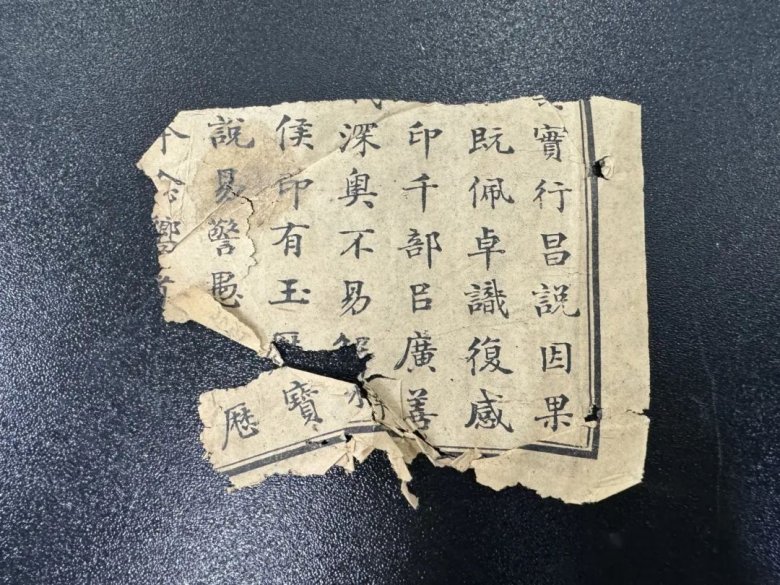 實行昌説因果
既佩卓識復感
印千部㠯廣善
深奥不易
侯印有玉
寶
説易警愚
歴